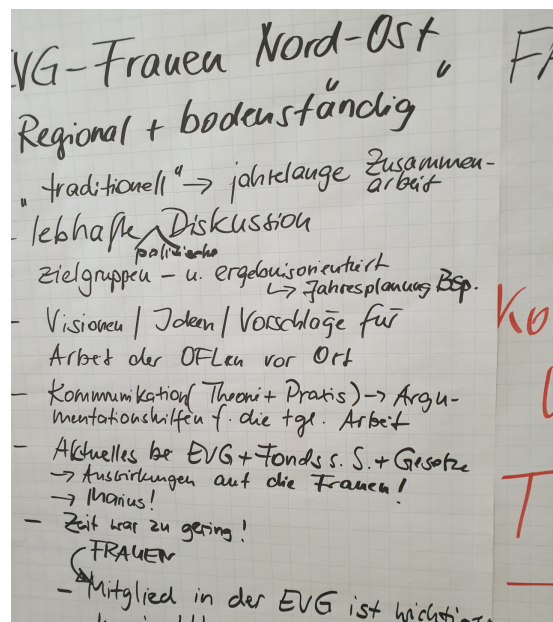 VG-Frauen Nord-Ost
"
Regional + bodenständig
"traditionell" → jahrelange Zusammen-
arbeit
- lebhafte Diskussion
politische
Zielgruppen - u. ergebnisorientiert
↳ Jahresplanung Bsp.
- Visionen / Ideen / Vorschläge für
Arbeit der OFLen vor Ort
- Kommunikation (Theorie + Praxis) → Argu-
mentationshilfen f. die tgl. Arbeit
- Aktuelles be EVG + Fonds s. S. + Gesetze
→ Auswirkungen auf die Frauen!
→ Marius!
- Zeit war zu gering!
FRAUEN
- Mitglied in der EVG ist wichtig
FA
Ko
T